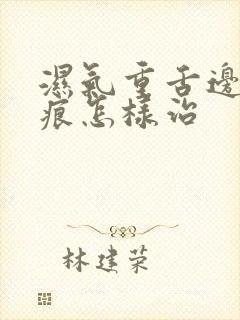 濕氣重舌邊
痕怎樣治
林建荣